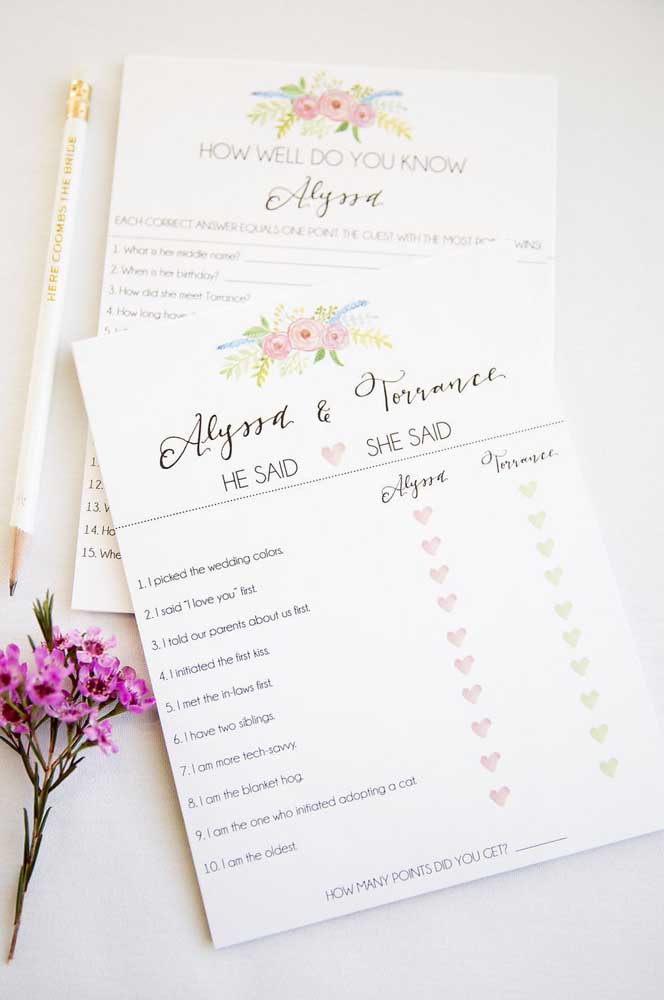 HERE COOMBS THE BRIDE
HOW WELL DO YOU KNOW
Alyssa
EACH CORRECT ANSWER EQUALS ONE POINT. THE GUEST WITH THE MOST WINS!
1. What is her middle name?
2. When is her birthday?
3. How did she meet Torrance?
4. How long have
5.
12.
13.
14.
15.
Alyssa & Torrance
HE SAID SHE SAID
Alyssa Torrance
1. I picked the wedding colors.
2. I said "I love you" first.
3. I told our parents about us first.
4. I initiated the first kiss.
5. I met the in-laws first.
6. I have two siblings.
7. I am more tech-savvy.
8. I am the blanket hog.
9. I am the one who initiated adopting a cat.
10. I am the oldest.
HOW MANY POINTS DID YOU GET?